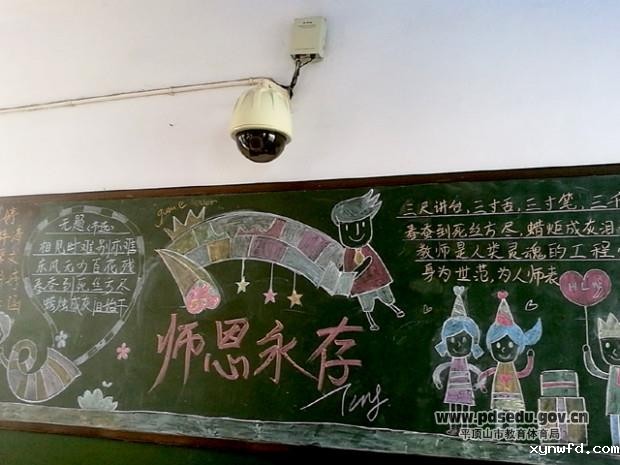 无题
相见时难别亦难
东风无力百花残
春蚕到死丝方尽
蜡炬成灰泪始干
game
师恩永存
三尺讲台,三寸舌,三寸笔,三千
春蚕到死丝方尽,蜡炬成灰泪
教师是人类灵魂的工程
身为世范,为人师表
www.pdsedu.gov.cn
平顶山市教育体育局
xynwfd.com